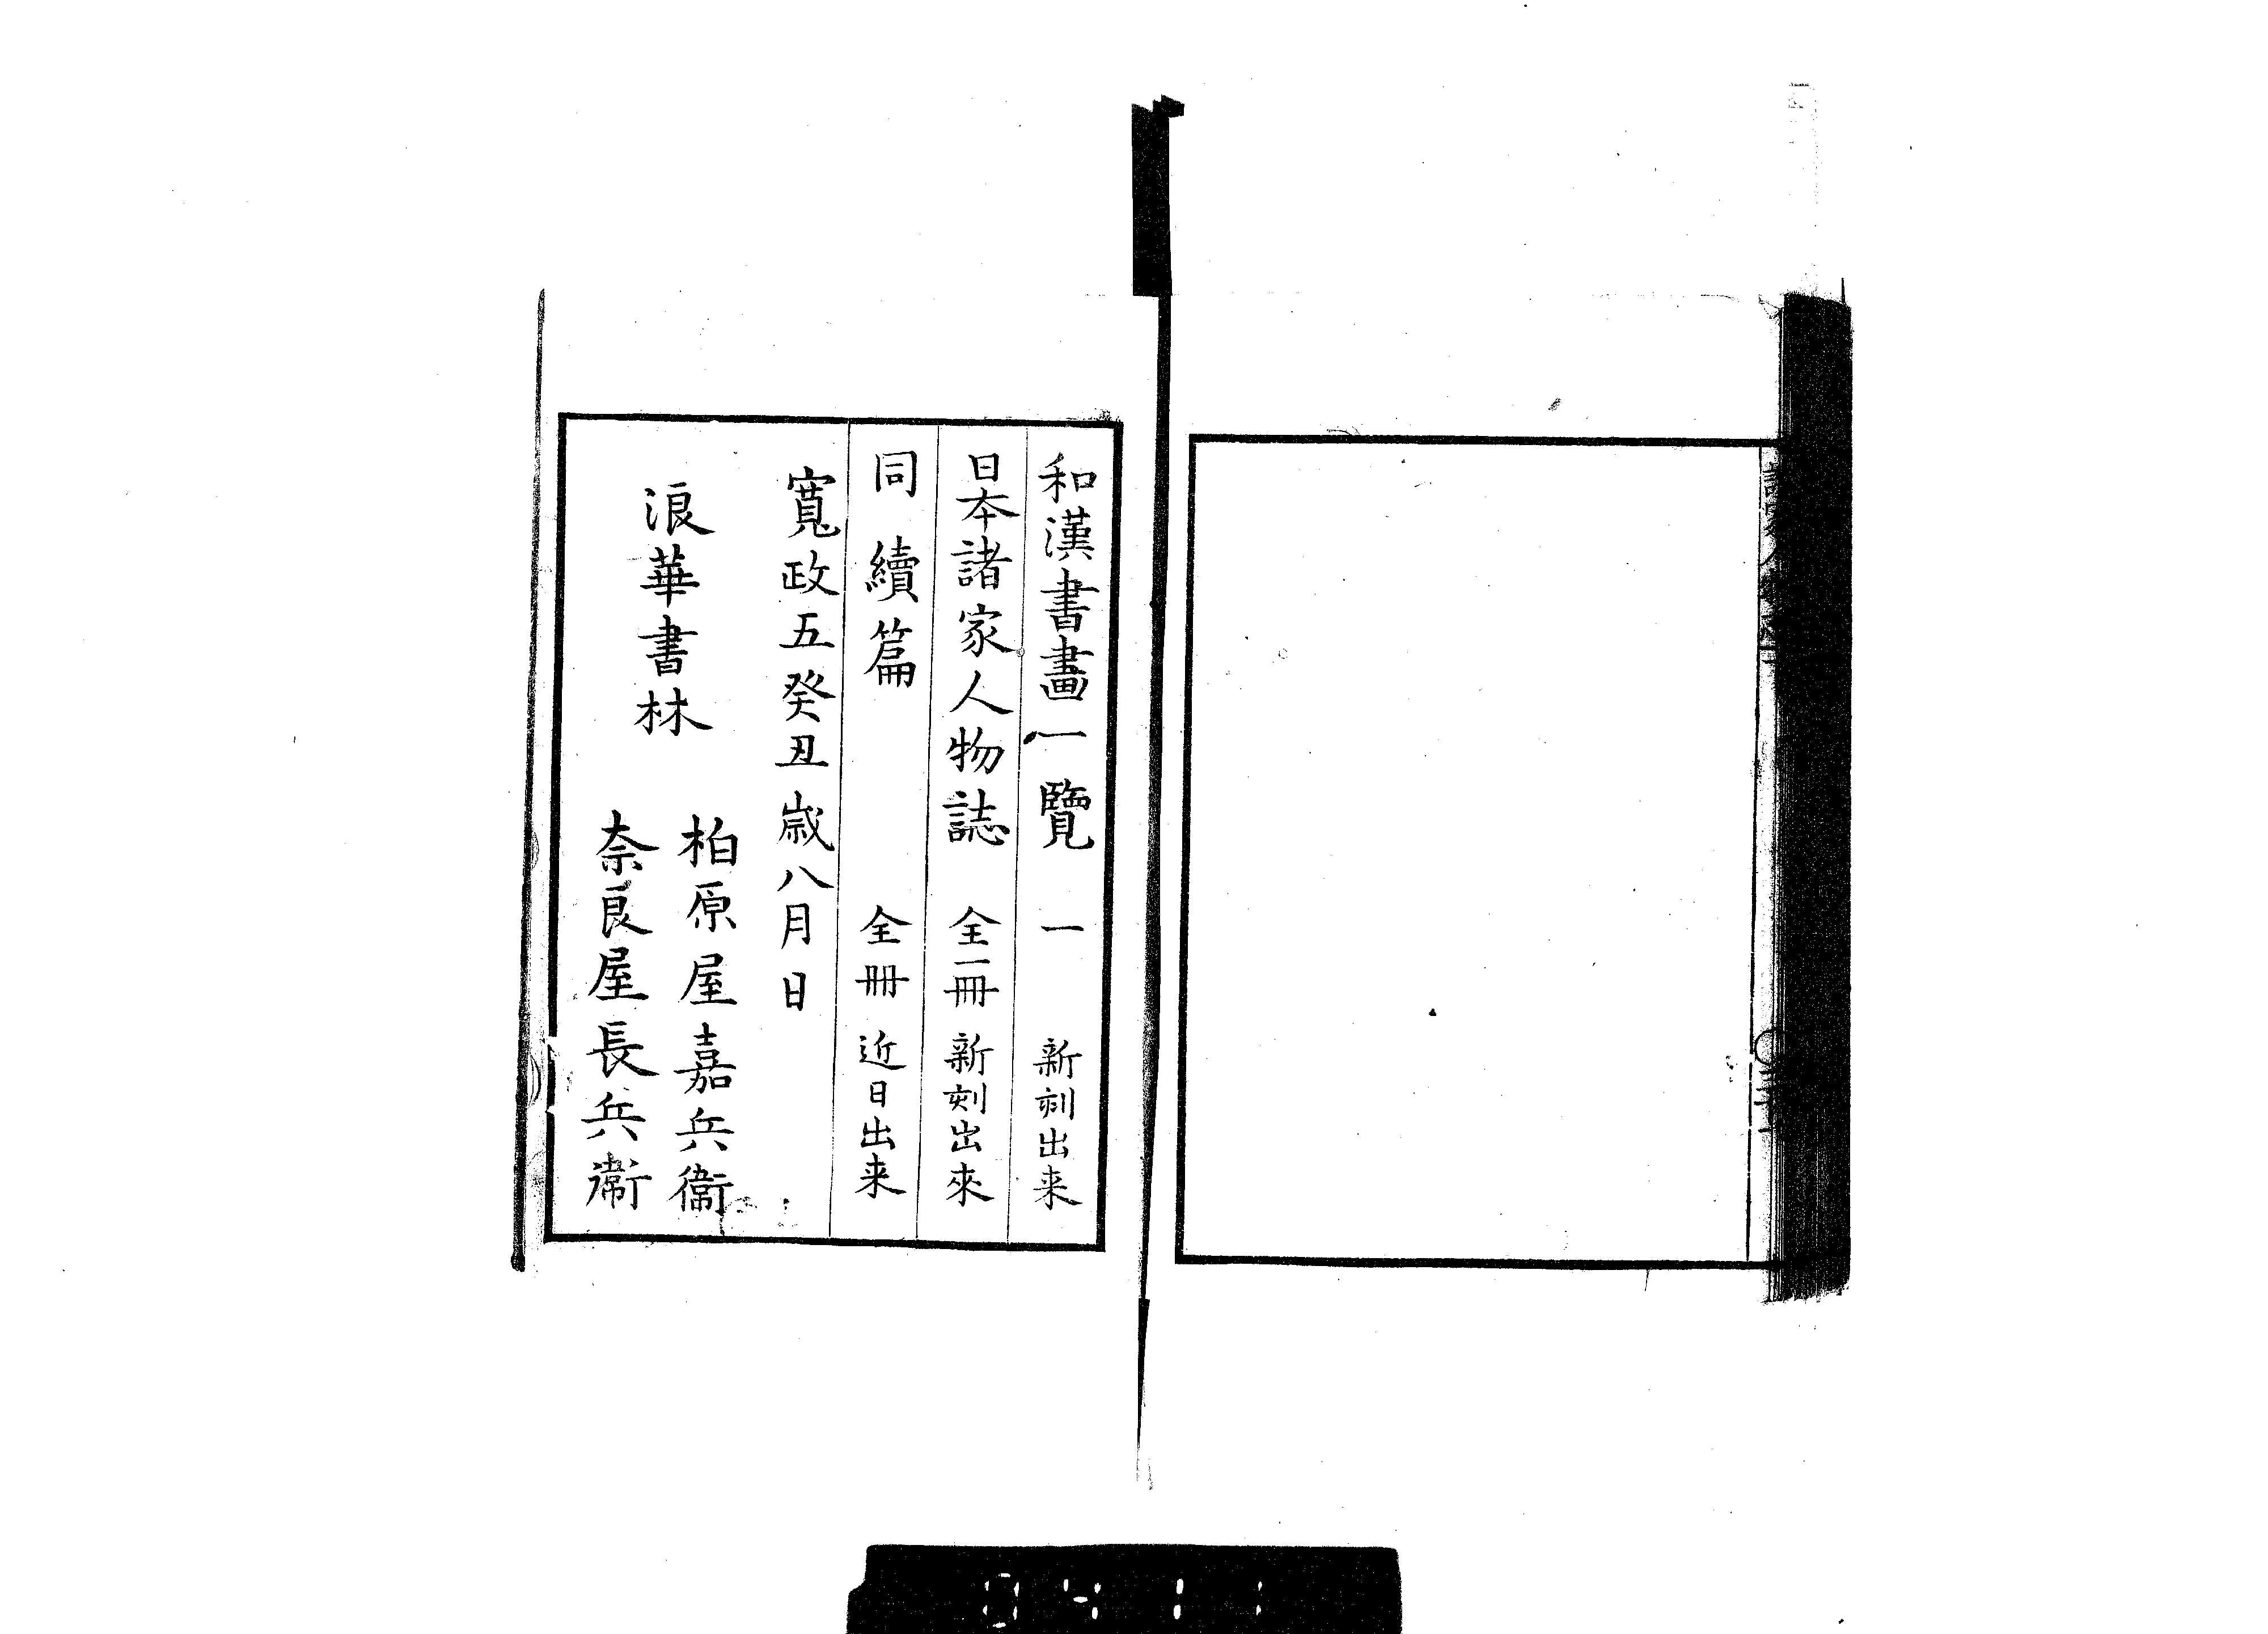 和漢書畫一覽 一 新刻出来
日本諸家人物誌 全二冊 新刻出來
同續篇 全冊 近日出来
寬政五癸丑歳八月日
浪華書林
柏原屋嘉兵衞
奈良屋長兵衞
0411